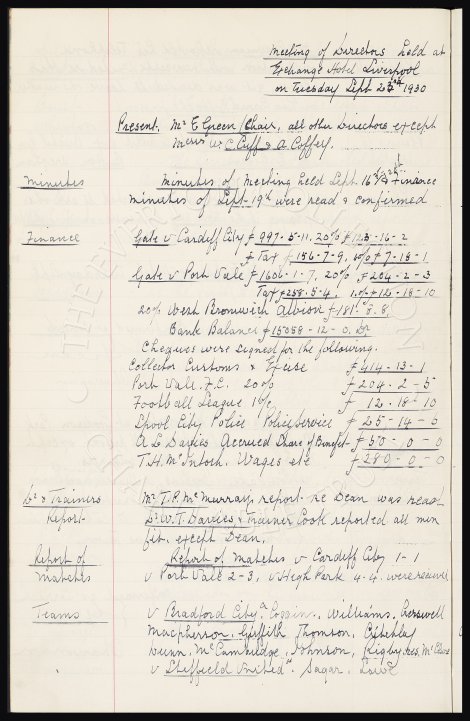 Meeting of Directors held at
Exchange Hotel Liverpool
on Tuesday Sept 23rd 1930
Present. Mr E Green/Chair, all other Directors except
Messrs W. C. Cuff & A. Coffey.
Minutes
Minutes of meeting held Sept 16th & Finance
minutes of Sept 19th were read & confirmed
Finance
Gate v Cardiff City £997-5-11. 20% £123-16-2
£ Tax £156-7-9, 1% £7-18-1
Gate v Port Vale £1606-1-7, 20% £204-2-3
Tax £258-5-4, 1% £12-18-10
20% West Bromwich Albion £181-8-8
Bank Balance £15058-12-0. Dr
Cheques were signed for the following.
Collector Customs & Excise £414-13-1
Port Vale. F.C. 20% £204-2-5
Football League 1% £12-18-10
Lpool City Police Police Service £25-14-6
A L Davies Accrued Share of Benefit £50-10-0
T. H. McIntosh. Wages etc £280-0-0
Dr & Trainers
Report
Mr T. P. McMurray, report re Dean was read
Dr W. T. Davies & Trainer Cook reported all men
fit, except Dean.
Report of
Matches
Report of Matches v Cardiff City 1-1
v Port Vale 2-3, v High Park 4-4. were received
Teams
v Bradford City a Coggins, Williams, Cresswell
Macpherson, Griffith Thomson, Critchley
Dunn, McCambridge, Johnson, Rigby Res. McClure
v Sheffield United H. Sagar, Lowe